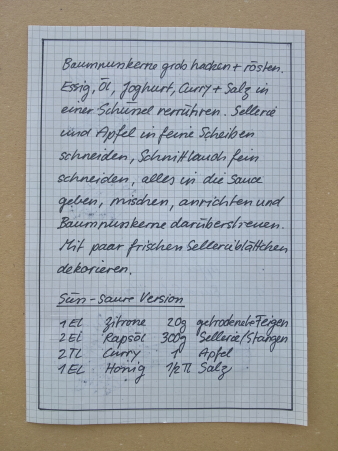 Baumnusskerne grob hacken + rösten.
Essig, Öl, Joghurt, Curry + Salz in
einer Schüssel verrühren. Sellerie
und Apfel in feine Scheiben
schneiden, Schnittlauch fein
schneiden, alles in die Sauce
geben, mischen, anrichten und
Baumnusskerne darüberstreuen.
Mit paar frischen Sellerieblättchen
dekorieren.
Süss-saure Version
1 EL Zitrone 20g getrocknete Feigen
2 El Rapsöl 300g Sellerie/Stangen
2 TL Curry 1 Apfel
1 EL Honig 1/2 TL Salz